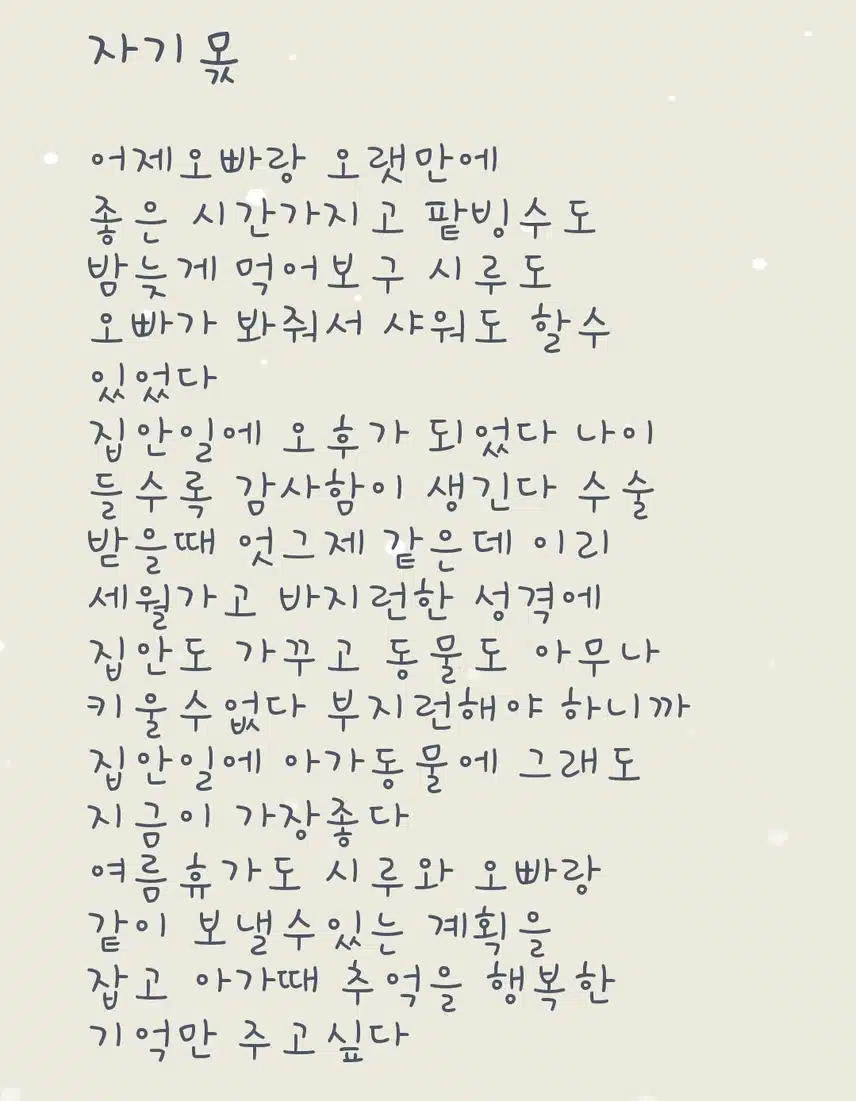 자기 몫
어제오빠랑 오랫만에
좋은 시간가지고 팥빙수도
밤늦게 먹어보구 시루도
오빠가 봐줘서 샤워도 할수
있었다
집안일에 오후가 되었다 나이
들수록 감사함이 생긴다 수술
받을때 엇그제 같은데 이리
세월가고 바지런한 성격에
집안도 가꾸고 동물도 아무나
키울수없다 부지런해야하니까
집안일에 아가동물에 그래도
지금이 가장좋다
여름휴가도 시루와 오빠랑
같이 보낼수있는 계획을
잡고 아가때 추억을 행복한
기억만 주고싶다